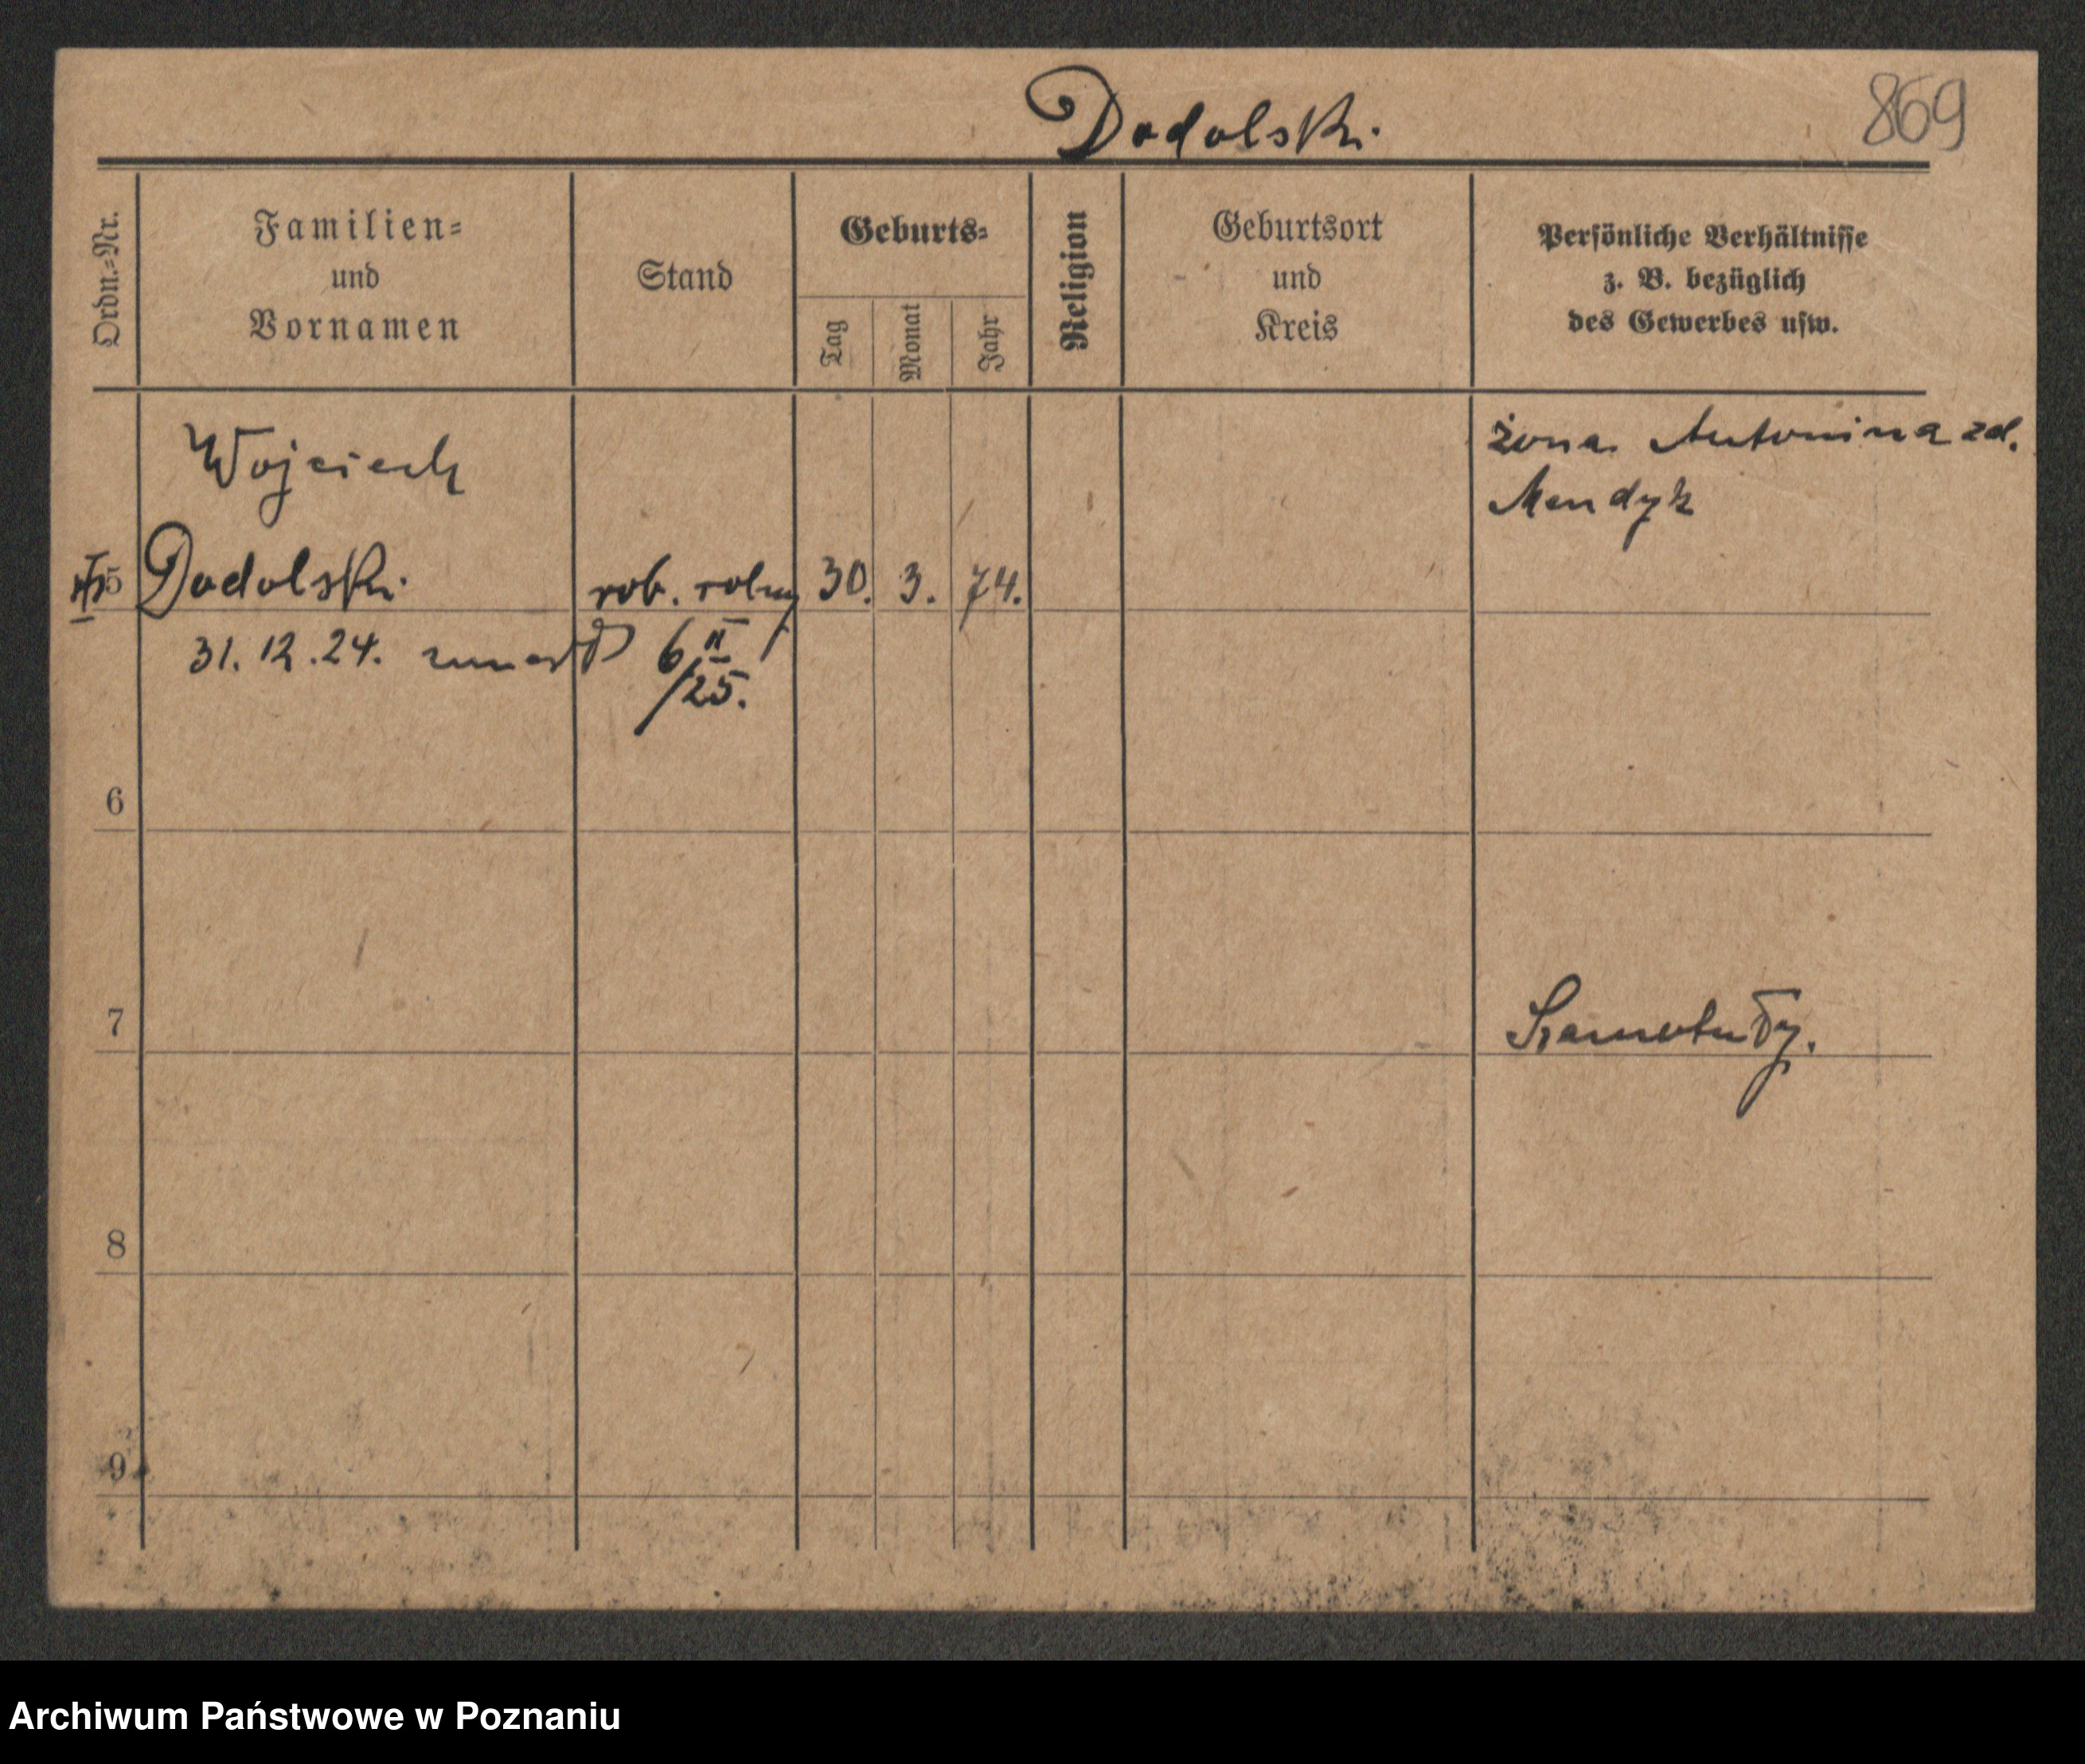 Dodolski.
869
Ordn.-Nr.
Familien-
und
Vornamen
Stand
Geburts-
Tag
Monat
Jahr
Religion
Geburtsort
und
Kreis
Persönliche Verhältnisse
z. B. bezüglich
des Gewerbes usw.
Wojciech
żona Antonina zd.
Mendyk
5
Dodolski.
rob. rolny
30.
3.
74.
31.12.24. zmarł
6 II
/25.
6
7
Szamotuły.
8
9
Archiwum Państwowe w Poznaniu